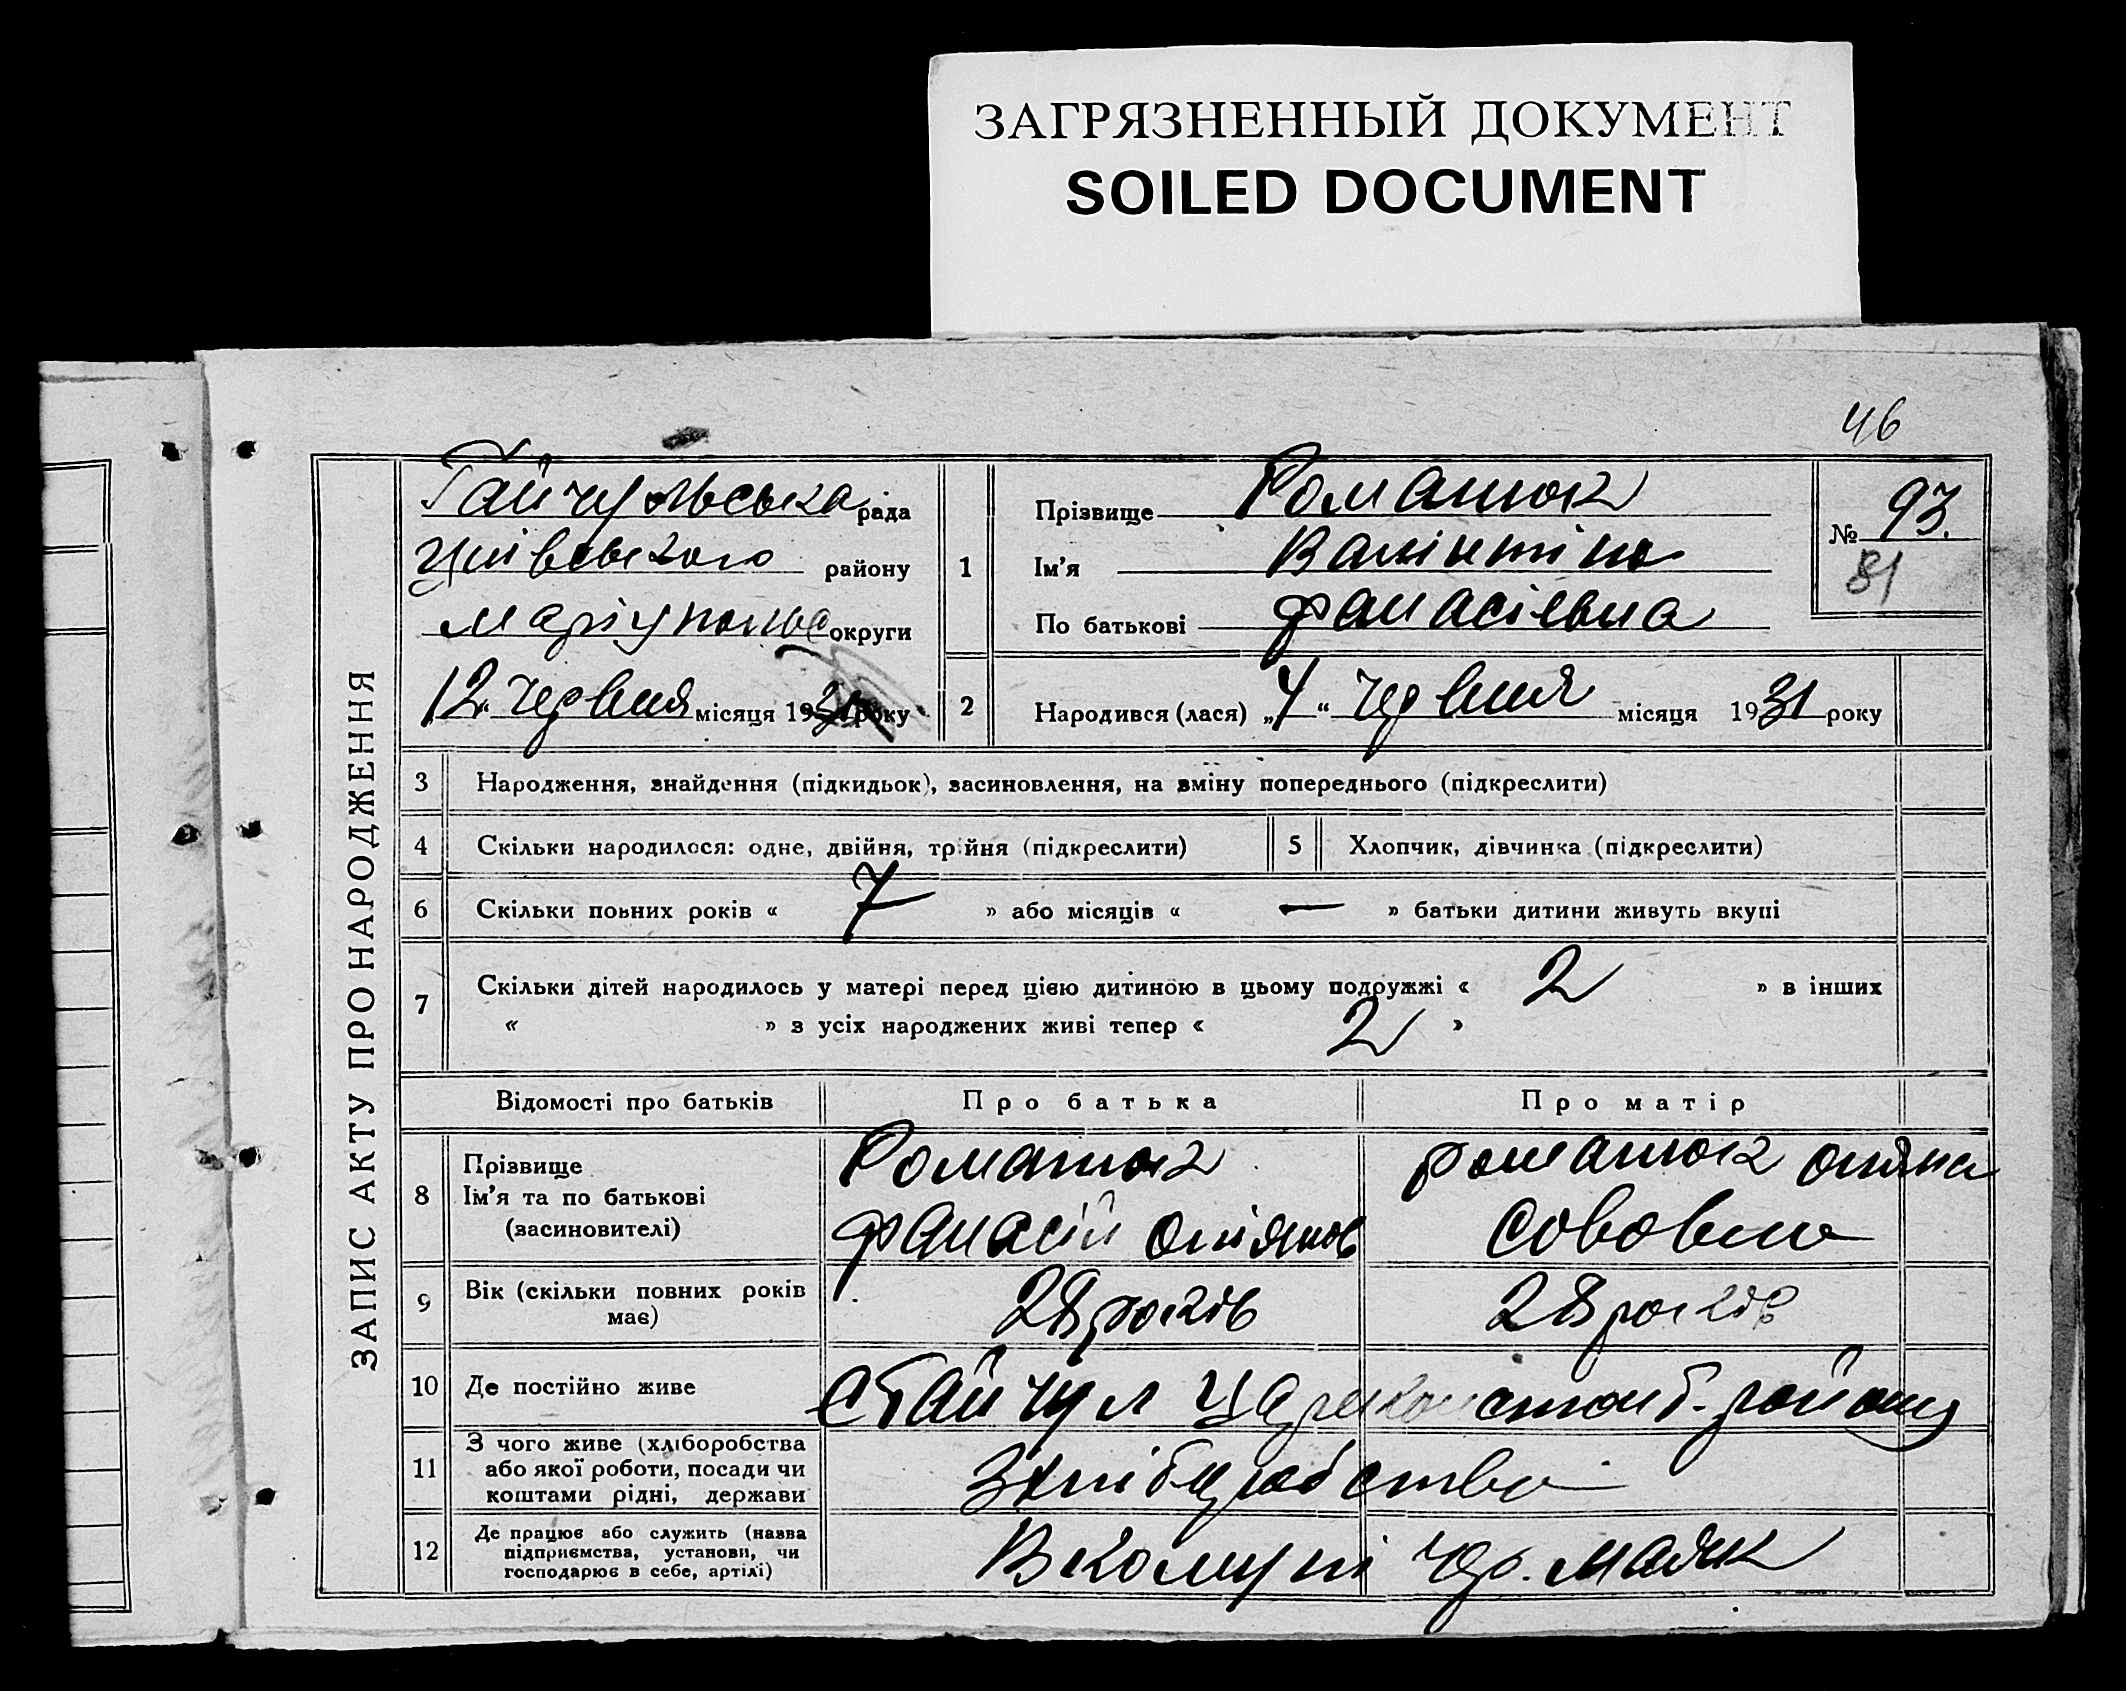 ЗАГРЯЗНЕННЫЙ ДОКУМЕНТ
SOILED DOCUMENT
46
ЗАПИС АКТУ ПРО НАРОДЖЕННЯ
Гайчульська рада
району
округи
12 червня місяця 19 року
1
Прізвище Романюк
Ім'я Валінтіна
По батькові Фанасівна
№ 93.
81
2
Народився (лася) „4“ червня місяця 1931 року
3 Народження, знайдення (підкидьок), засиновлення, на зміну попереднього (підкреслити)
4 Скільки народилося: одне, двійня, трійня (підкреслити) 5 Хлопчик, дівчинка (підкреслити)
6 Скільки повних років « 7 » або місяців « — » батьки дитини живуть вкупі
7 Скільки дітей народилось у матері перед цією дитиною в цьому подружжі « 2 » в інших
« » з усіх народжених живі тепер « 2 »
Відомості про батьків Про батька Про матір
8 Прізвище
Ім'я та по батькові
(засиновителі)
Романюк
Фанасій
Романюк
9 Вік (скільки повних років
має)
28 років 28 років
10 Де постійно живе
с Гайчул району
11 З чого живе (хліборобства
або якої роботи, посади чи
коштами рідні, держави
Зхліборобства
12 Де працює або служить (назва
підприємства, установи, чи
господарює в себе, артілі)
В комуні Чер. Маяк